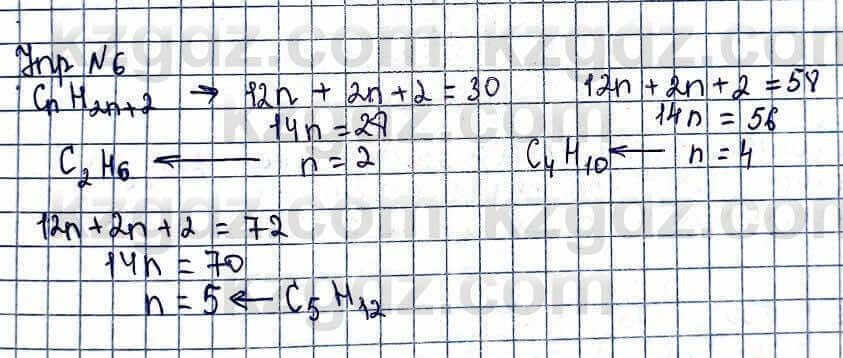 Упр N6
CnH2n+2 → 12n + 2n + 2 = 30
14n = 28
C2H6 ← n = 2
12n + 2n + 2 = 58
14n = 56
C4H10 ← n = 4
12n + 2n + 2 = 72
14n = 70
n = 5 ← C5H12
kzgdz.com